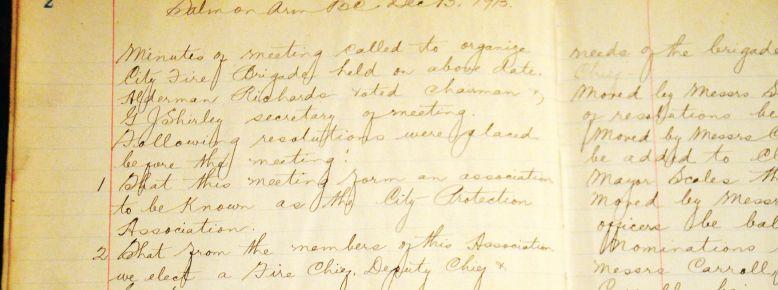 2
Salmon Arm BC Dec 13, 1913.
Minutes of meeting called to organize
City Fire Brigade held on above date.
Alderman Richards voted chairman &
G J Shirley secretary of meeting.
Following resolutions were placed
before the meeting:
1 That this meeting form an association
to be known as the City Protection
Association.
2 That from the members of this Association
we elect a Fire Chief, Deputy Chief &
needs of the brigade
Chief
Moved by Messrs
of resolutions be
Moved by Messrs
be added to
Mayor Scales
Moved by Messrs
officers be
Nominations
Messrs Carroll